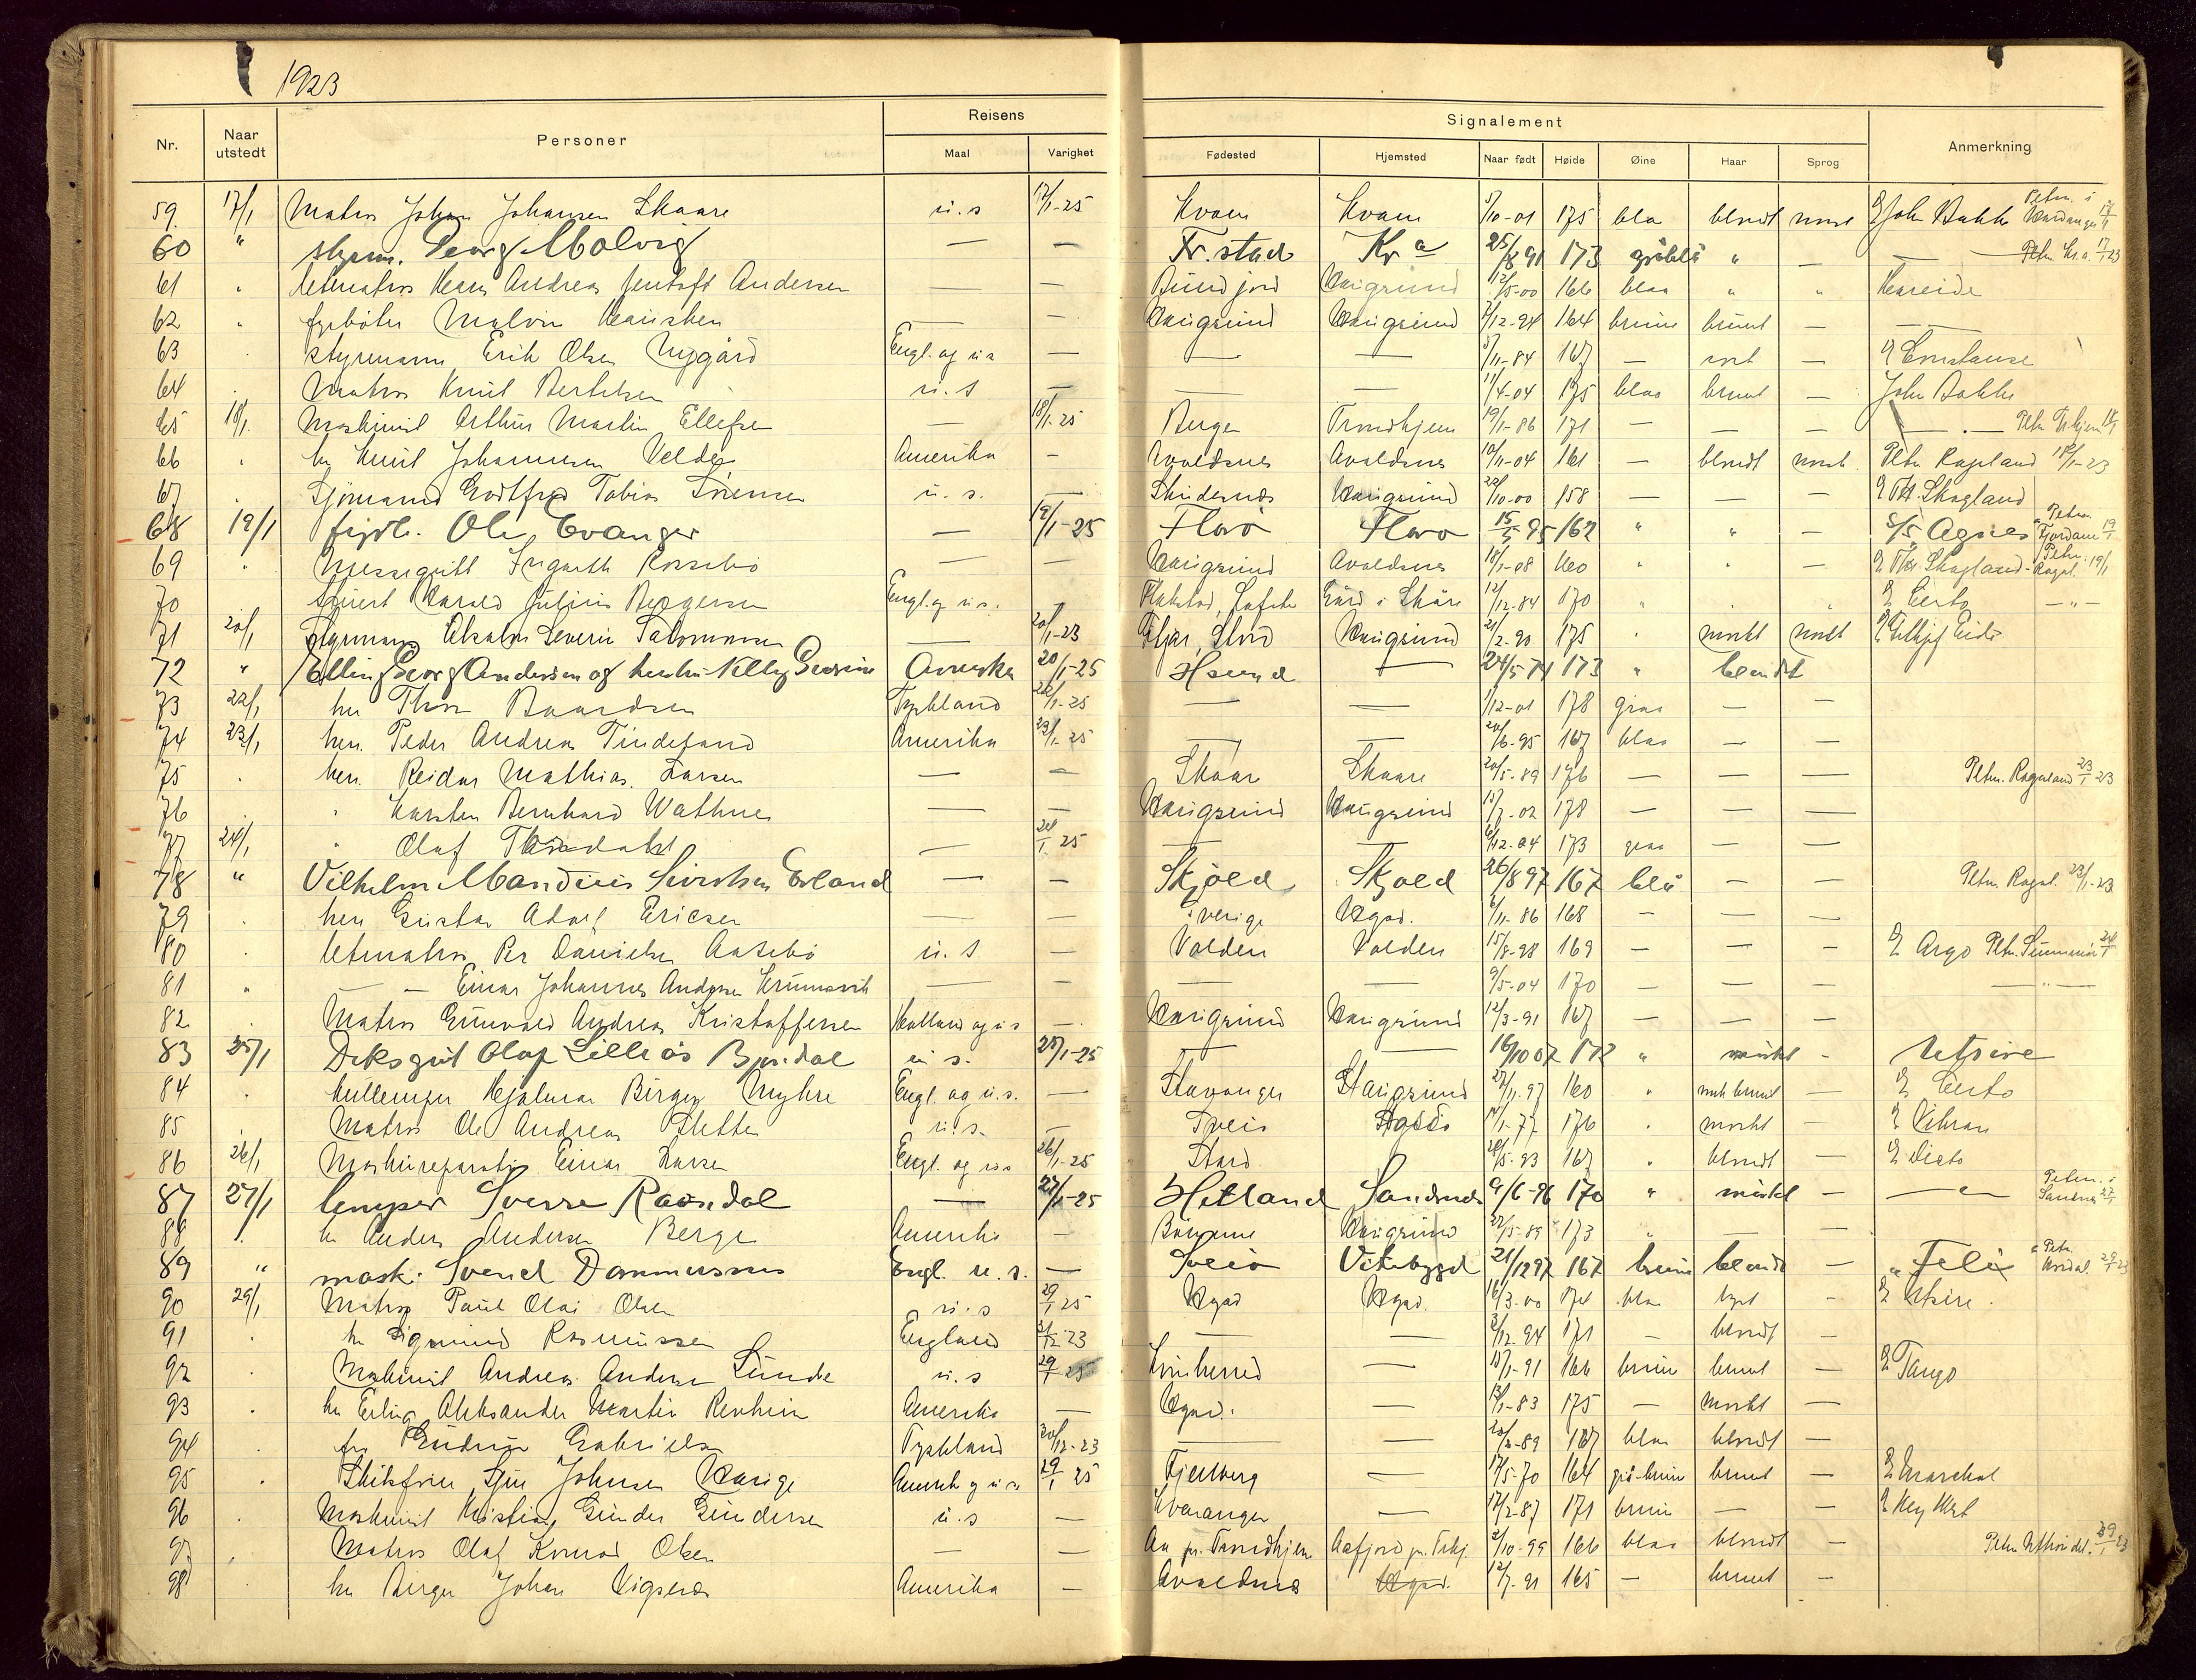 1923
Nr. Naar utstedt Personer Reisens Maal Varighet Signalement Fødested Hjemsted Naar født Høide Øine Haar Sprog Anmerkning
59. 17/1 Matros Johan Johansen Skaare u.s 17/1-25 Kvam Kvam 175 blaa blondt norsk John Bakke
60 " styrm. Georg Molvig — — Fr.stad Kra 25/8 91 173 gråblå " — — Petm. Kr.a. 17/1 23
61 " Letmatros Hans Andreas Jentoft Andersen — — Haugesund 12/5-00 166 blaa " " Hareide
62 " fyrbøter Malvin — — Haugesund Haugesund 7/12-94 164 brune brunt — —
63 styrmann Erik Olsen Nygård Engl. og u s — — — 5/11-84 167 — sort — Constance
64 Matros Knut Bertelsen u. s — — — 11/4-04 175 blaa brunt — John Bakke
65 18/1. Maskinist Arthur Martin Ellefsen — 18/1-25 Bergen Trondhjem 19/1-86 171 — — — —
66 " hr Knut Johannesen Velde Amerika — Avaldsnes Avaldsnes 10/11-04 161 — blondt norsk Petm Rogaland 18/1-23
67 . Sjømand Godtfred Tobias Sørensen u. s. — Skudesnes Haugesund 22/10-00 158 — — — Th. Skogland
68 19/1 fyrb. Ole Evanger — 19/1-25 Florø Florø 15/5 95 162 " " S/S Agnes Petm. Fjordane 19/1
69 " Messegutt Ingarth Rossebø — — Haugesund Avaldsnes 18/1-08 160 " " — Th. Skogland - Petm. Rogal. 19/1
70 Stuert Harald Julius Bergersen Engl. og u.s. — Flakstad, Lofoten Gård i Skåre 12/12-84 170 " " " Certo — " —
71 20/1 Styrmann Severin Salomonsen — 20/1-23 Fitjar, Stord Haugesund 21/2-90 175 " mørkt norsk
72 " Elling Georg Andersen og hustru Nelly Amerika 20/1-25 — 24/5-74 173 " blondt
73 22/1 hr Thor Baardsen Tyskland 22/1-25 — — 1/12-01 178 graa — —
74 23/1 herr. Peder Andreas Tindeland Amerika 23/1-25 — — 20/6-95 167 blaa — —
75 . herr. Reidar Mathias Larsen — — Skaar Skaare 20/5-89 176 — — — Petm. Rogaland 23/1 23
76 . " Karsten Bernhard Wathne — — Haugesund Haugesund 15/7-02 178 — — —
77 24/1 " Olaf — 24/1 25 — — 6/12-04 173 graa — —
78 " Vilhelm Mandius Sivertsen Erland — — Skjold Skjold 26/8 97 167 blå — — Petm. Rogal. 23/1-23
79 . herr Gustav Adolf Ericsen — — Sverige Hgsd. 6/11-86 168 — — —
80 . Letmatros Per Danielsen Aasebø u. s — Volden Volden 15/8-98 169 — — — Argo Petm. Sunnmør 24/1
81 " — — Einar Johannes Andersen — — — — 9/5-04 170 — — — — " —
82 . Matros Gunvald Andreas Kristoffersen Holland og u s — Haugesund Haugesund 12/3-91 167 — — —
83 25/1 Deksgut Olaf Lilleås Bjordal u s. 25/1-25 — — 16/10 07 172 " mørkt - Utsire
84 . kullemper Hjalmar Birger Myhre Engl. og u.s. — Stavanger Haugesund 27/11-97 160 " mørk brunt — Certo
85 . Matros Ole Andreas Slette u. s. — Sveio 14/1-77 176 " mørkt —
86 26/1 Maskinreparatør Einar Larsen Engl. og u s 26/1-25 Stord 28/5-93 167 " blondt — Certo
87 27/1 lemper Sverre Rossdal — 27/1-25 Hetland Sandnes 9/6-96 170 " mørkt — — " — Petm. i Sandnes 27/1
88 . hr Anders Andersen Berge Amerika — Haugesund 22/5-89 173 " — —
89 " mask. Svend Dommersnes Engl. u. s. — Sveio Vikebygd 21/12 97 167 brune blondt — "Felix" Petm.
90 29/1 Matros Paul Olai Olsen u. s 29/1 25 Hgsd Hgsd. 16/3-00 174 blaa lyst — Utsire.
91 . hr Sigmund Rasmussen England — — 3/12-94 171 — blondt —
92 . Maskinist Andreas Andersen Sunde u. s 29/1 25 Kvinherred — 15/1-91 166 brune brunt — Tango
93 . hr Erling Aleksander Martin Amerika — Hgsd. — 13/1-83 175 — mørkt —
94 . fru Gudrun Gabrielsen Tyskland 30/12-23 — 20/2-89 167 blaa blondt —
95 . Skibsfører Johnsen Hauge Amerik og u s 29/1 25 Fjelberg — 17/5-70 164 grå-brune brunt —
96 . Maskinist Kristian Gunder Gundersen u. s — — 17/2-87 171 brune — — Key West
97 . Matros Olaf Konrad Olsen — — Aa pr. Trondhjem Aafjord pr. Trhj. 2/10-99 166 blaa blondt —
98 . hr Birger Johan Vigsnæs Amerika — Avaldsnæs Hgsd. 12/7-91 165 — brunt —